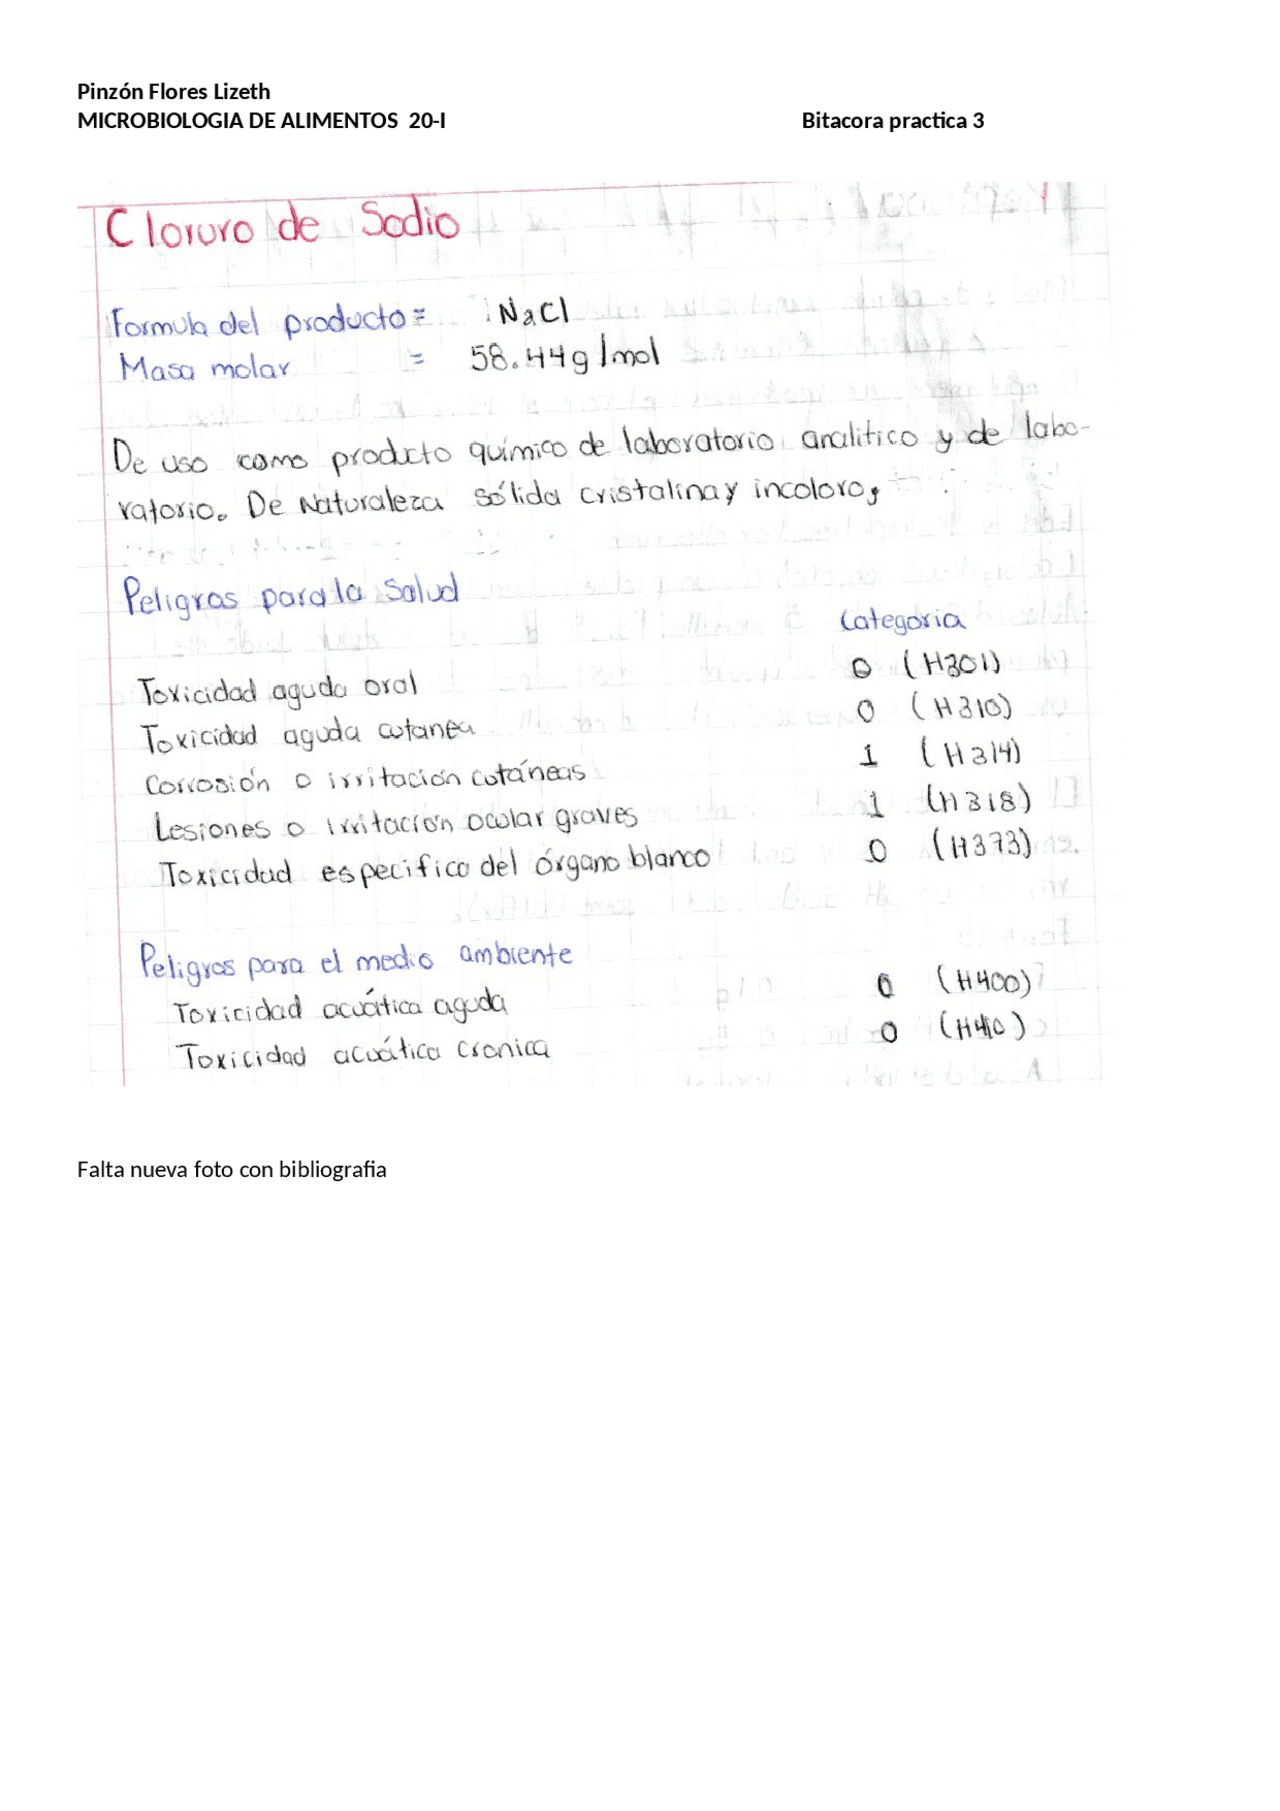 Pinzón Flores Lizeth
MICROBIOLOGIA DE ALIMENTOS 20-I Bitacora practica 3
Cloruro de Sodio
Formula del producto = NaCl
Masa molar = 58.44g/mol
De uso como producto químico de laboratorio analitico y de labo-
ratorio. De Naturaleza sólida cristalina y incoloro,
Peligros para la Salud
Categoria
Toxicidad aguda oral 0 (H301)
Toxicidad aguda cutanea 0 (H310)
Corrosión o irritación cutáneas 1 (H314)
Lesiones o irritación ocular graves 1 (H318)
Toxicidad especifica del órgano blanco 0 (H373)
Peligros para el medio ambiente
Toxicidad acuática aguda 0 (H400)
Toxicidad acuática cronica 0 (H410)
Falta nueva foto con bibliografia